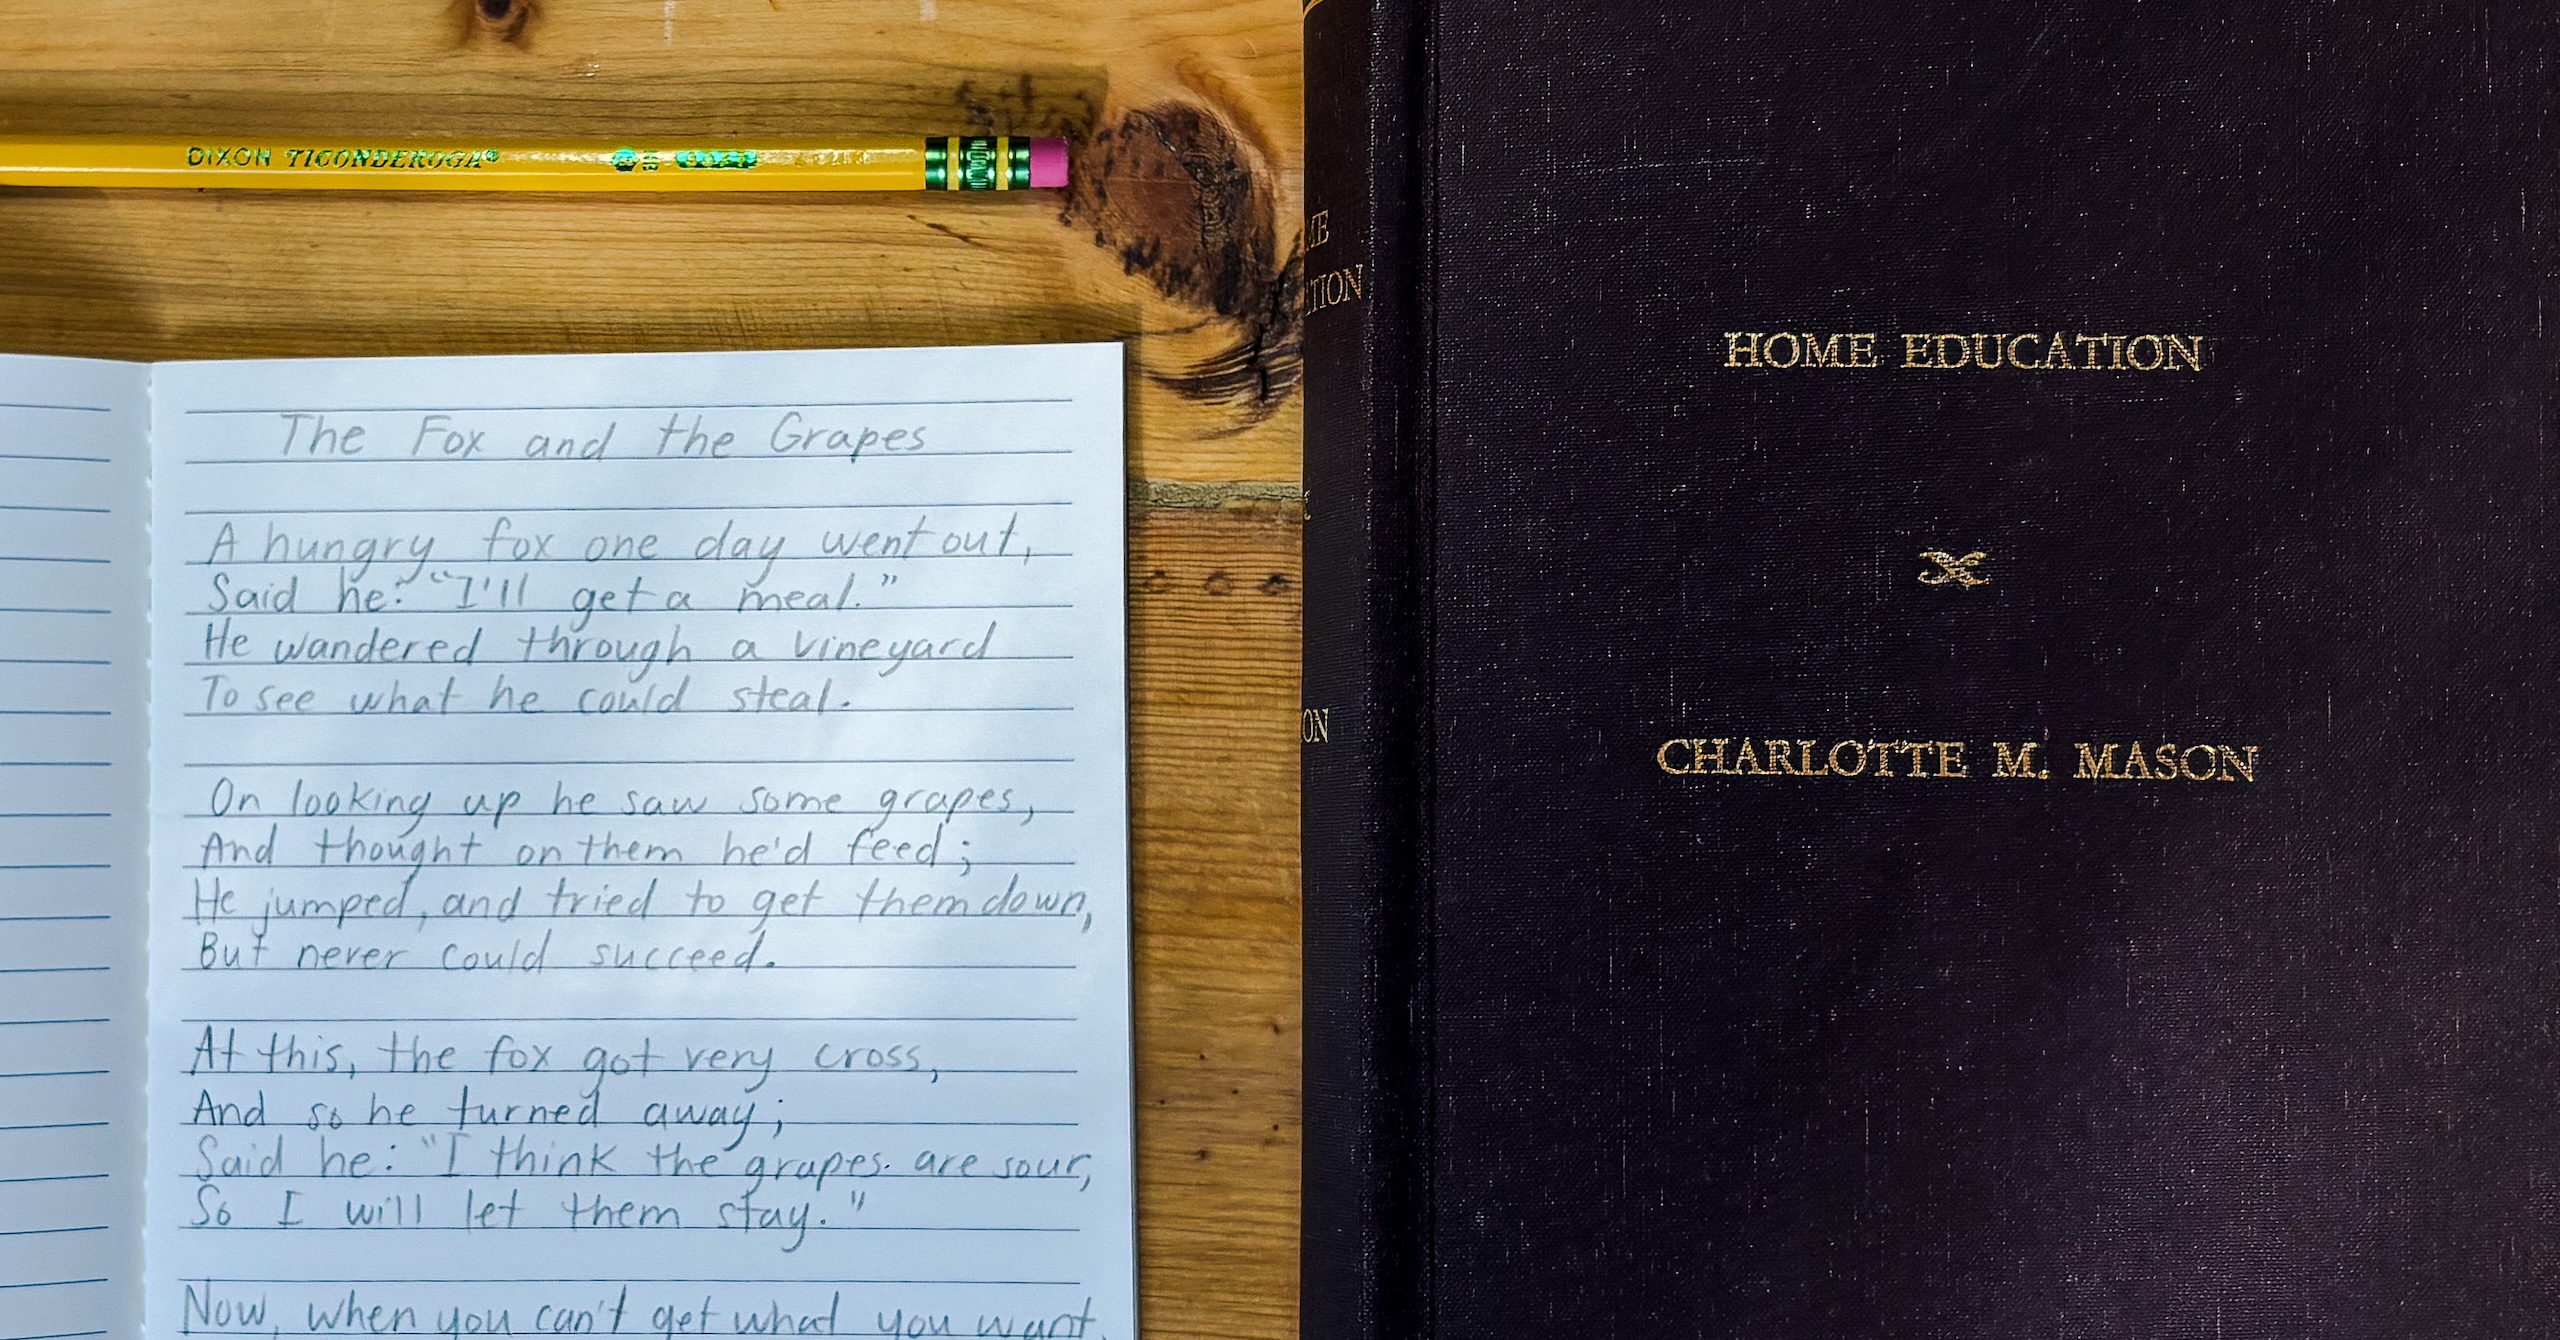 DIXON TICONDEROGA®
The Fox and the Grapes
A hungry fox one day went out,
Said he: "I'll get a meal."
He wandered through a vineyard
To see what he could steal.
On looking up he saw some grapes,
And thought on them he'd feed;
He jumped, and tried to get them down,
But never could succeed.
At this, the fox got very cross,
And so he turned away;
Said he: "I think the grapes are sour,
So I will let them stay."
Now, when you can't get what you want,
HOME EDUCATION
CHARLOTTE M. MASON